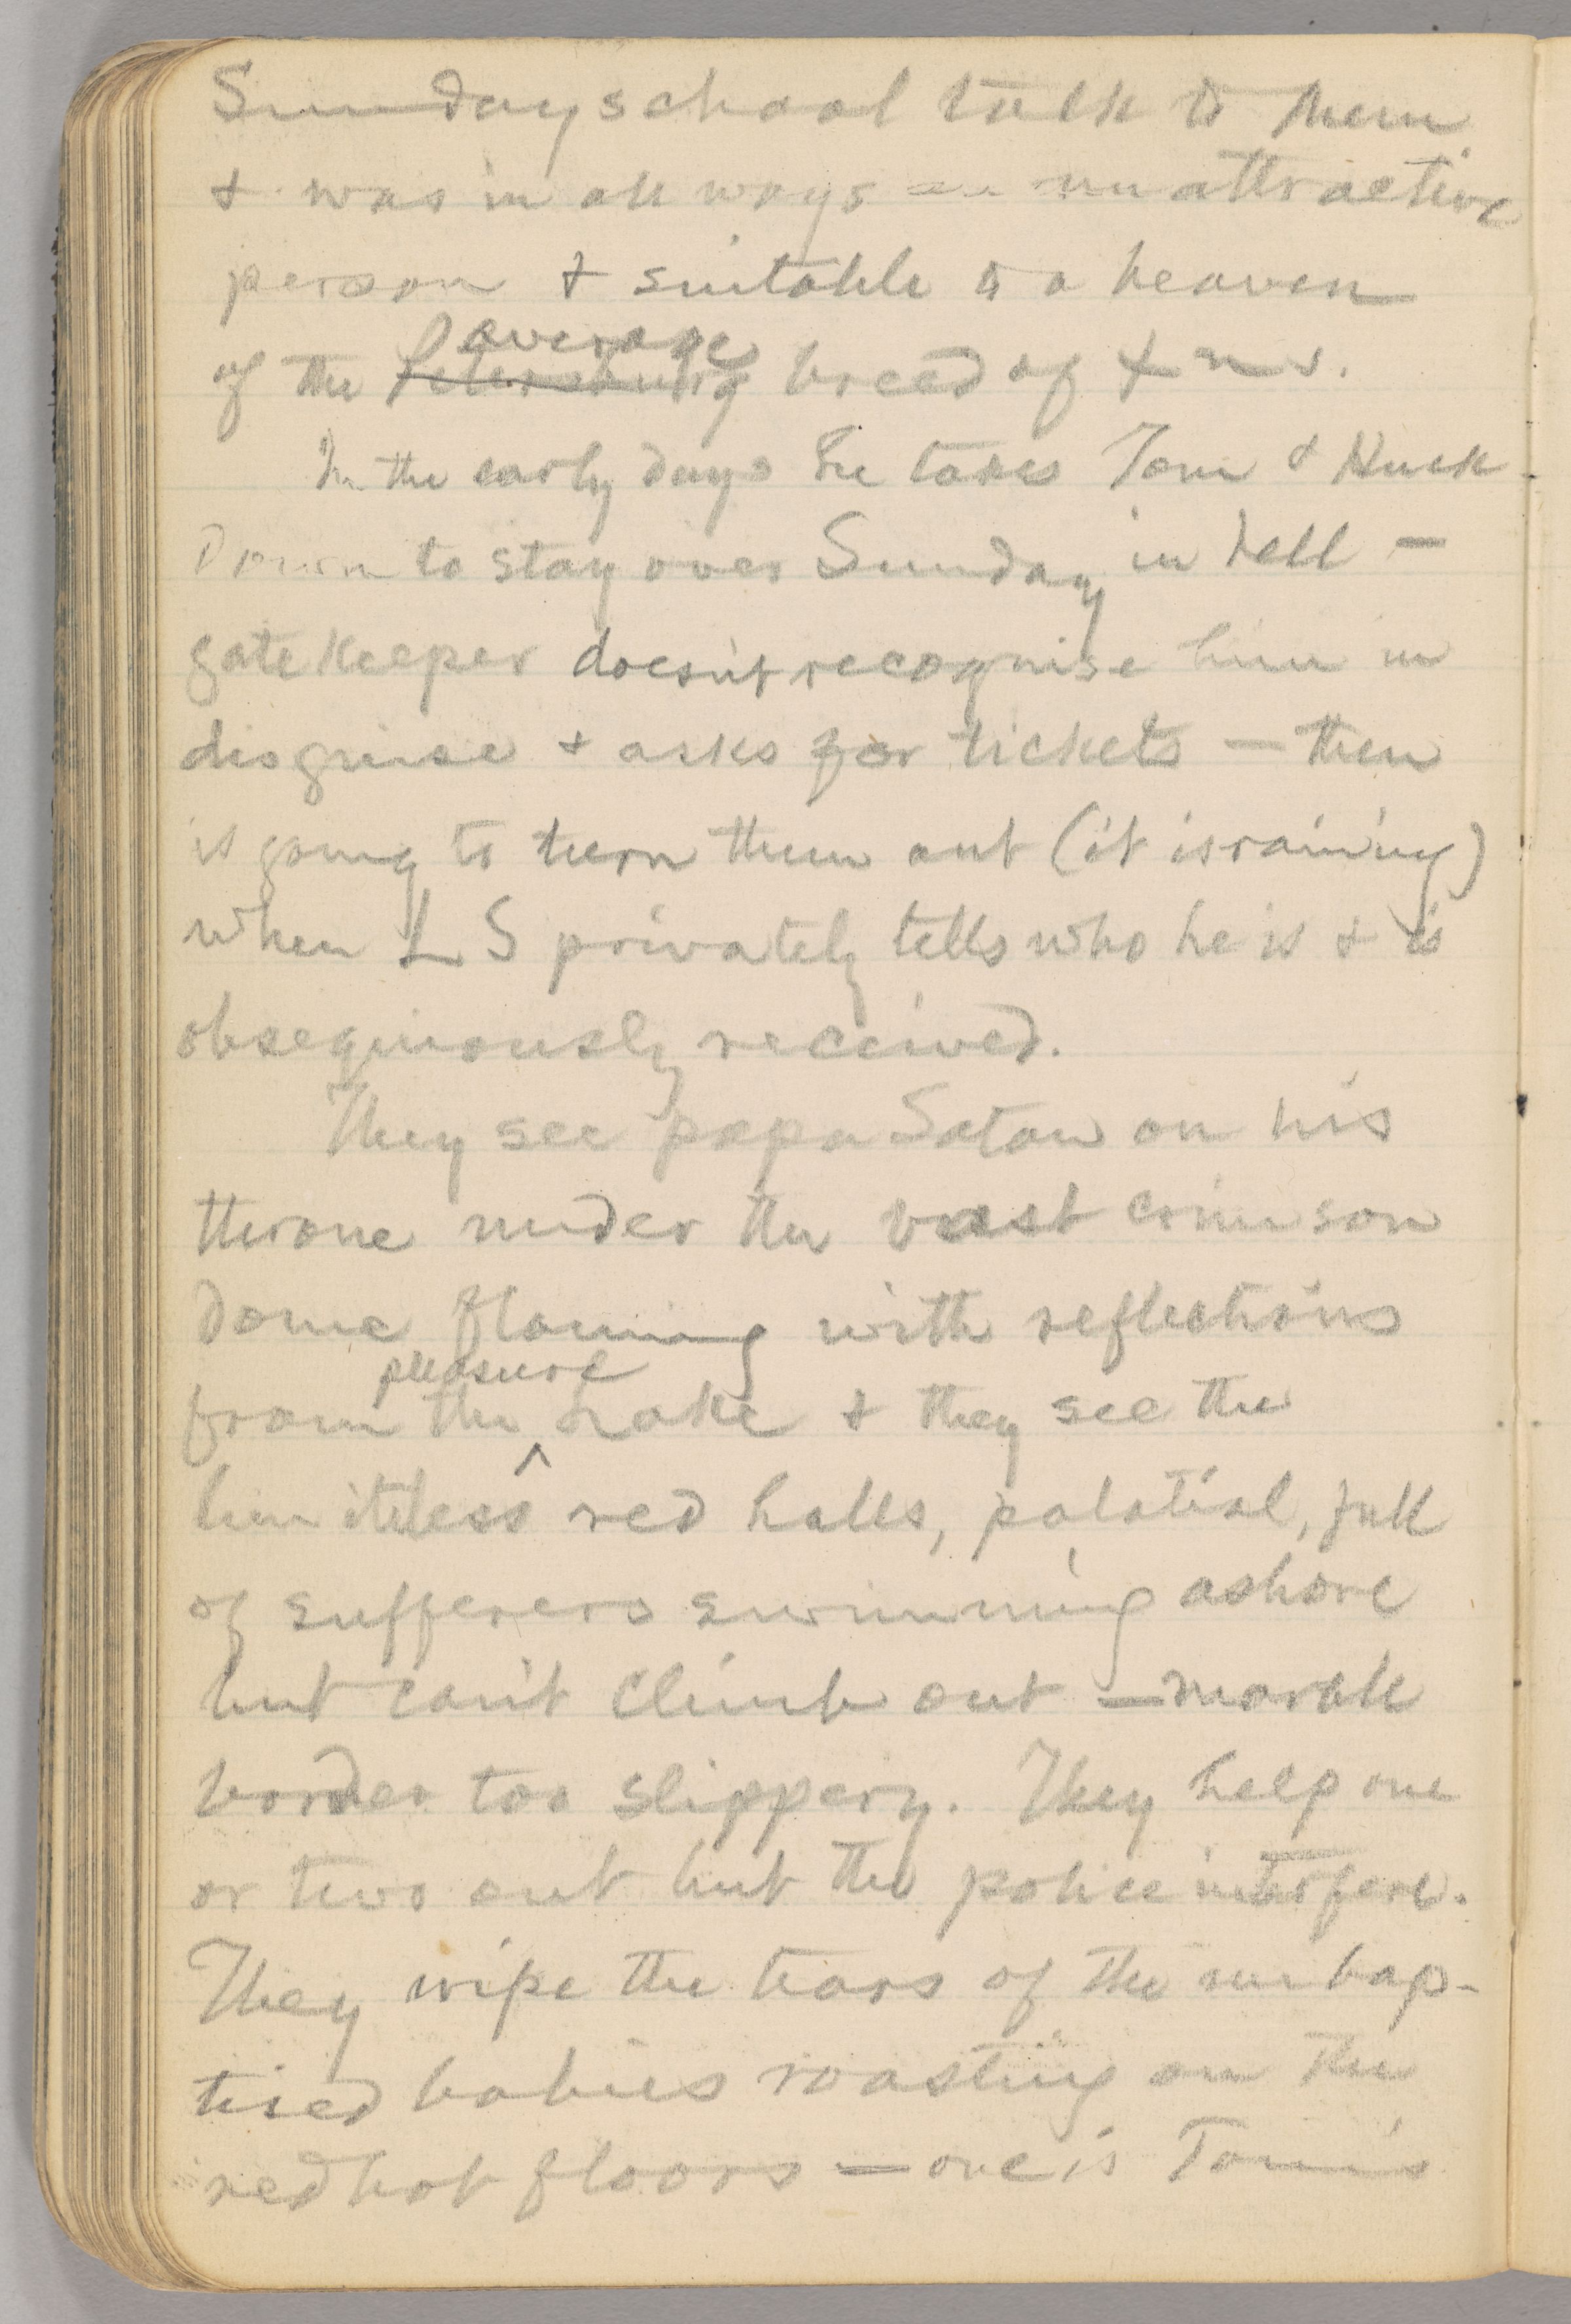 Sunday school talk to them
& was in all ways an unattractive
person & suitable to a heaven
average
of the Petersburg breed of Xns.
In the early days he takes Tom & Huck
down to stay over Sunday in hell —
gate keeper doesn't recognise him in
disguise & asks for tickets — then
is going to turn them out (it is raining)
when L S privately tells who he is & is
obsequiously received.
They see papa Satan on his
throne under the vast crimson
dome flaming with reflections
pleasure
from the ^ Lake & they see the
limitless red halls, palatial, full
of sufferers swimming ashore
but can't climb out — marble
border too slippery. They help one
or two out but the police interfere.
They wipe the tears of the unbap-
tised babies roasting on the
red hot floors — one is Tom's